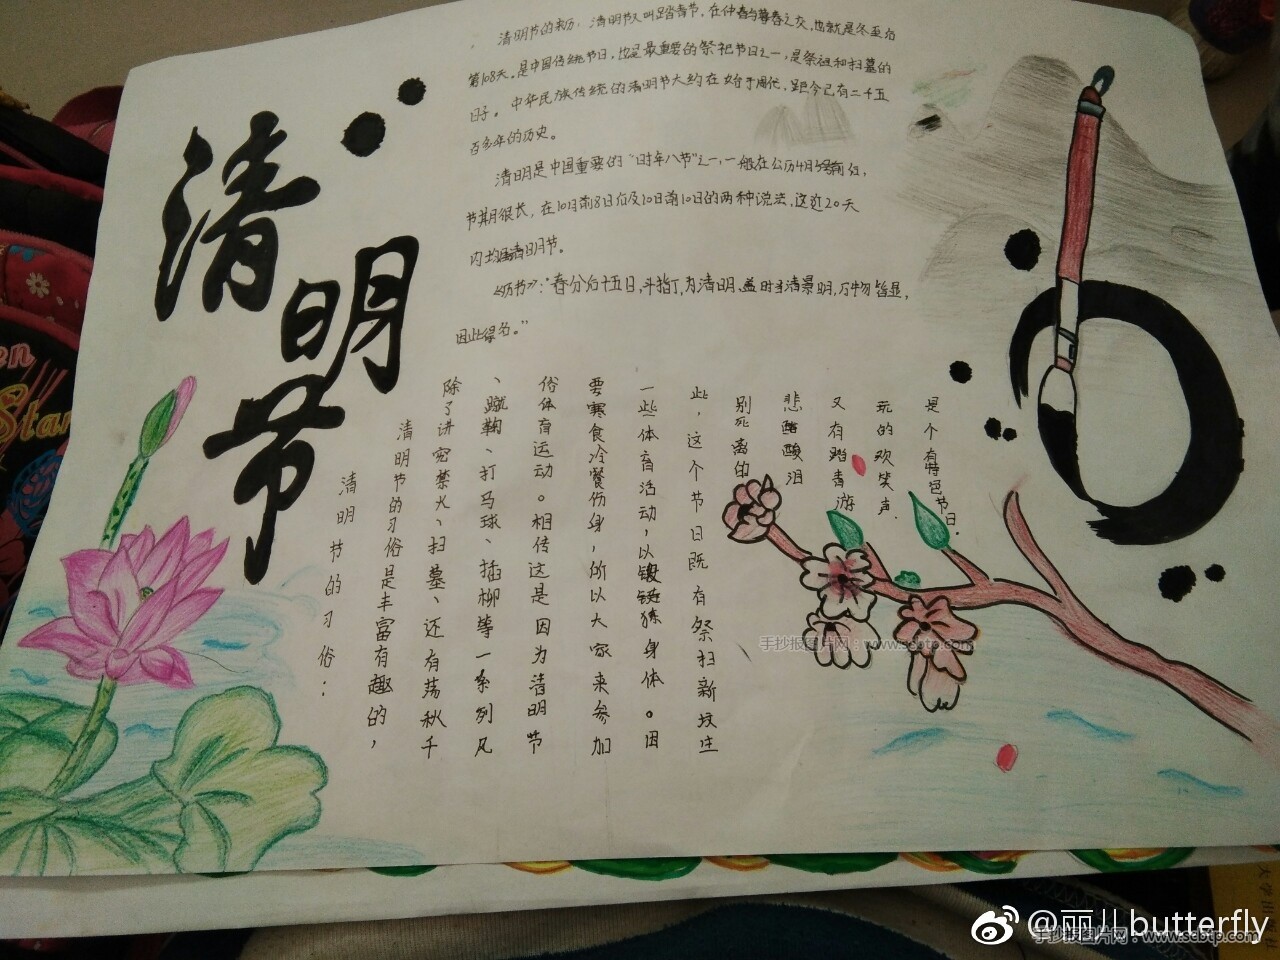 清明节
清明节的来历：清明节又叫踏青节，在仲春与暮春之交，也就是冬至后
第108天。是中国传统节日，也是最重要的祭祀节日之一，是祭祖和扫墓的
日子。中华民族传统的清明节大约在始于周代，距今已有二千五
百多年的历史。
清明是中国重要的“时年八节”之一，一般在公历4月5号前后，
节期很长，在10日前8日后及10日前10日的两种说法，这近20天
内均属清明节。
《历书》：“春分后十五日，斗指丁，为清明，盖时当清景明，万物皆显，
因此得名。”
清明节的习俗：
清明节的习俗是丰富有趣的，
除了讲究禁火、扫墓、还有荡秋千
、蹴鞠、打马球、插柳等一系列风
俗体育运动。相传这是因为清明节
要寒食冷餐伤身，所以大家来参加
一些体育活动，以锻炼身体。因
此，这个节日既有祭扫新坟生
别死离的
悲酸泪
又有踏青游
玩的欢笑声，
是个有特色节日。
手抄报图片网：www.scbtp.com
@丽儿butterfly
手抄报图片网：www.scbtp.com